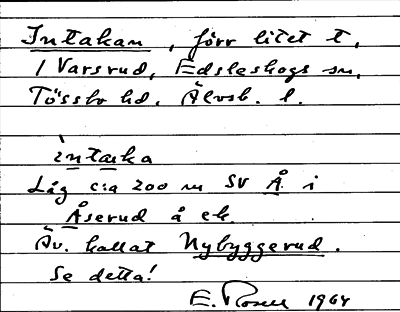 Intakan, förr litet t.
i Varsrud, Edsleskogs sn,
Tössbo hd. Älvsb. l.
ìntaka
Låg c:a 200 m SV Å i
Åserud å ek.
Äv. kallat Nybyggerud.
Se detta!
E. Rosell 1964